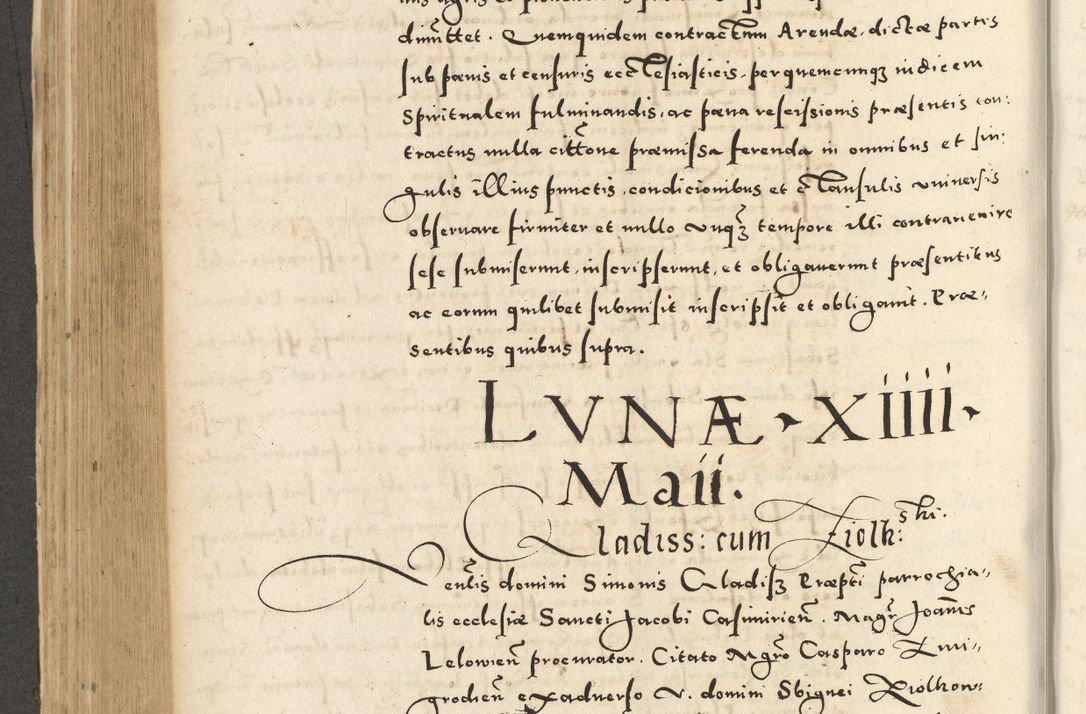 dimittet. Quemquidem contractum Arendæ, dictæ partis
sub pænis et censuris ecclesiasticis, per quemcumqȝ iudicem
Spiritualem fulminandis, ac pæna rescissionis præsentis con:
tractus nulla cittõne præmissa ferenda in omnibus et sin:
gulis illius punctis, condicionibus et clausulis vniuersis
obseruare firmiter et nullo vnqȝ tempore illi contrauenire
sese submiserunt, inscripserunt, et obligauerunt præsentibus
ac eorum quilibet submisit inscripsit et obligauit. Præ„
sentibus quibus supra.
LVNÆ · XIIII ·
Maii.
Gladiss: cum Ziolk: ski.
Venlis domini Simonis Gladisȝ Præpti parrochia„
lis ecclesiæ Sancti Jacobi Casimirieñ. Magr Joañis
Lelowieñ procurator. Citato Mgro Casparo Zmi„
grodieñ ex aduerso V. domini Sbignei Ziolkow: